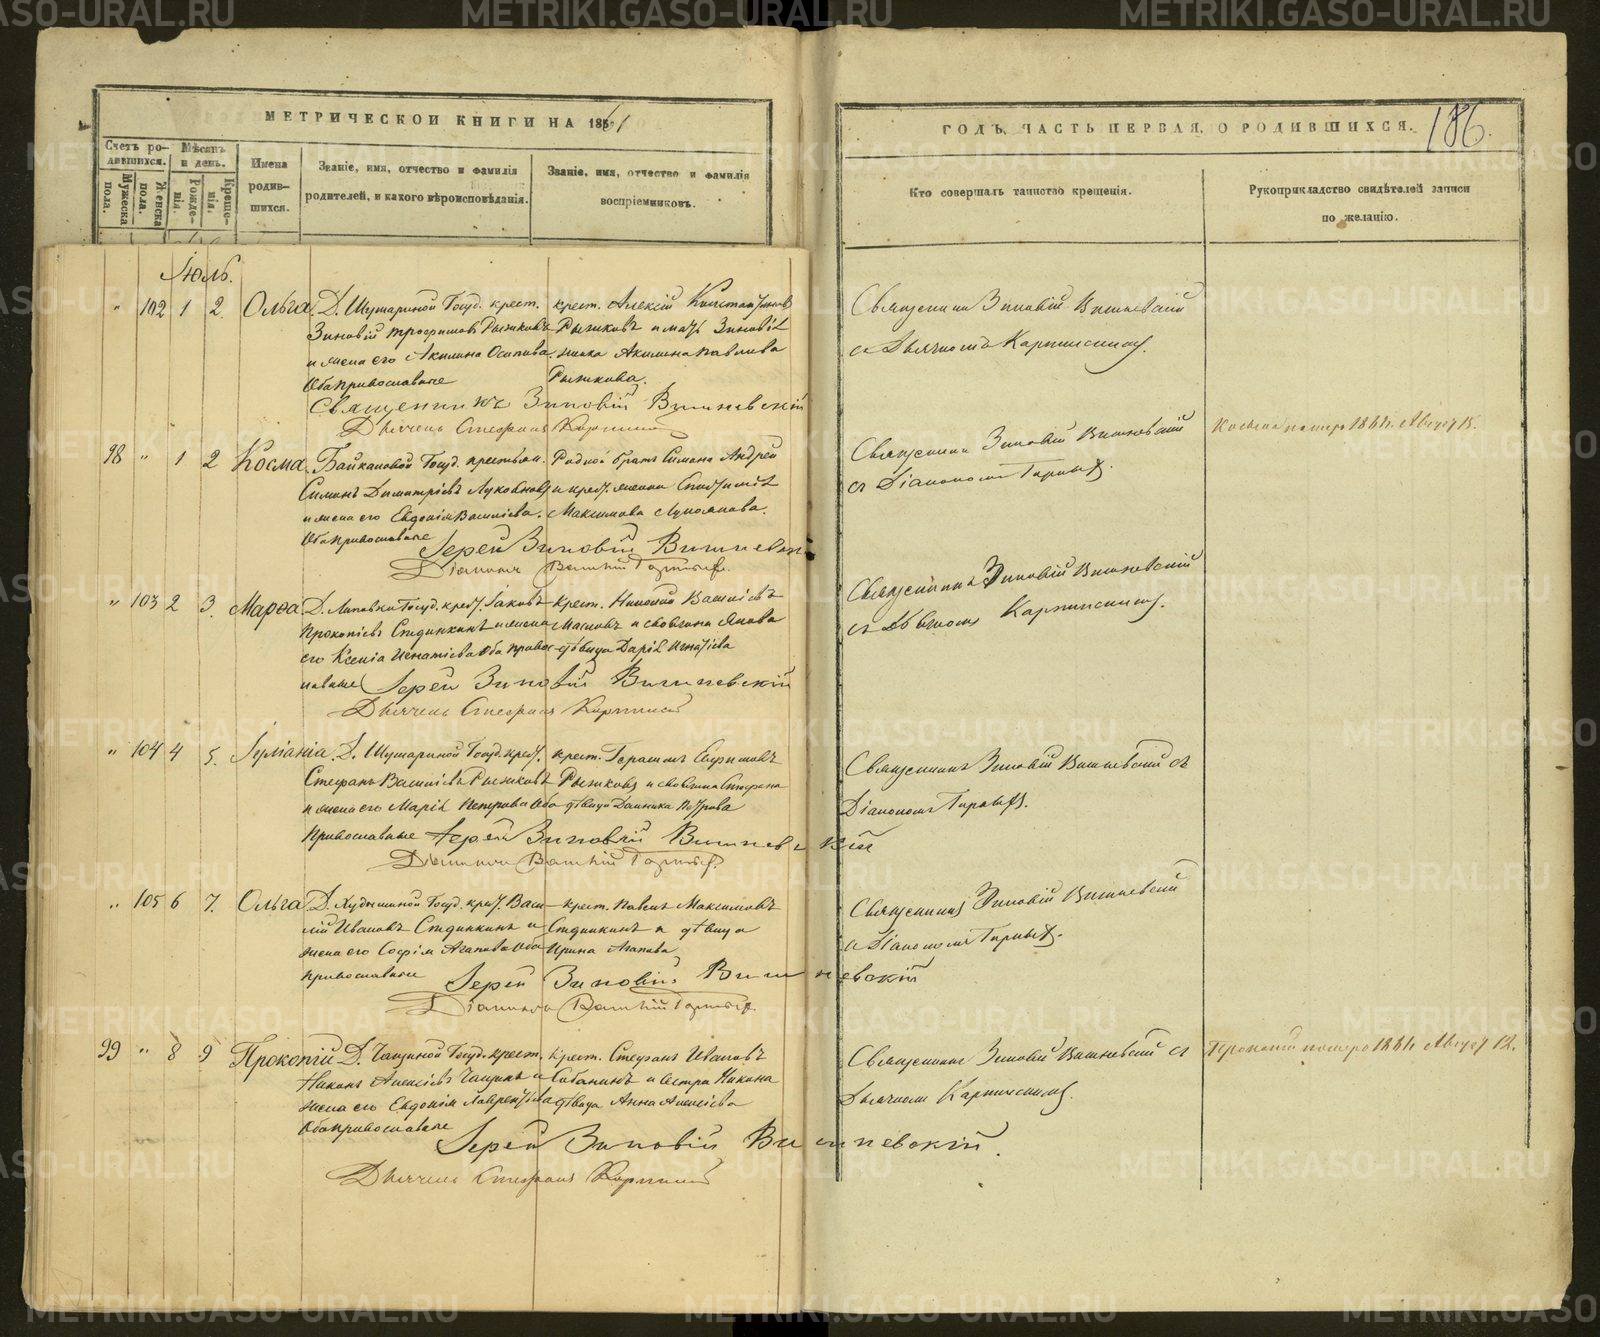 МЕТРИЧЕСКОЙ КНИГИ НА 1861
ГОДЪ, ЧАСТЬ ПЕРВАЯ, О РОДИВШИХСЯ.
186.
Счетъ ро-
дившихся.
Мужеска
пола.
Женска
пола.
Мѣсяцъ
и день.
Рожде-
нія.
Креще-
нія.
Имена
родив-
шихся.
Званіе, имя, отчество и фамилія
родителей, и какого вѣроисповѣданія.
Званіе, имя, отчество и фамилія
воспріемниковъ.
Кто совершалъ таинство крещенія.
Рукоприкладство свидѣтелей записи
по желанію.
Іюль.
" 102 1 2 Ольга
Д. Шушариной Госуд. крест.
Зиновій Трофимовъ Рыжковъ
и жена его Акилина Осипова
Оба православные
крест. Алексій Константиновъ
Рыжковъ и мать Зиновія
Акилина Павлова
Рыжкова.
Священникъ Зиновій Вишневскій
Дьячекъ Стефанъ Карпинскій
Священникъ Зиновій Вишневскій
съ Дьячкомъ Карпинскимъ.
98 " 1 2 Косма
Байкаловой Госуд. крестьян.
Симонъ Димитріевъ
и жена его Евдокія Василіева.
Оба православные
Родной братъ Симона Андрей
и крест. жена
Максимова
Іерей Зиновій Вишневскій
Діаконъ Василій
Священникъ Зиновій Вишневскій
съ Діакономъ
Косьма померъ 1861 г. Август 15.
" 103 2 3. Марѳа
Д. Липовки Госуд. крест. Іаковъ
Прокопіевъ и жена
его Ксенія Игнатіева оба право-
славные
крест. Николай Василіевъ
Масловъ и своячина Якова
дѣвица Дарія Игнатіева
Іерей Зиновій Вишневскій
Дьячекъ Стефанъ Карпинскій
Священникъ Зиновій Вишневскій
съ Дьячкомъ Карпинскимъ.
" 104 4 5.
Д. Шушариной Госуд. крест.
Стефанъ Василіевъ Рыжковъ
и жена его Марія Петрова Оба
православные
крест. Герасимъ Ефимовъ
Рыжковъ и своячина Стефана
дѣвица Домника Петрова
Іерей Зиновій Вишневскій
Діаконъ Василій
Священникъ Зиновій Вишневскій съ
Діакономъ
" 105 6 7. Ольга
Д. Худышиной Госуд. крест. Васи-
лій Ивановъ и
жена его Софія Агапова Оба
православные
крест. Павелъ Максимовъ
и дѣвица
Ирина Агапова
Іерей Зиновій Вишневскій
Діаконъ Василій
Священникъ Зиновій Вишневскій
съ Діакономъ
99 " 8 9 Прокопій
Д. Чащиной Госуд. крест.
Никонъ Алексіевъ Чащинъ и
жена его Евдокія Лаврентіева
Оба православные
крест. Стефанъ Ивановъ
Сабанинъ и сестра Никона
дѣвица Анна Алексіева
Іерей Зиновій Вишневскій.
Дьячекъ Стефанъ Карпинскій
Священникъ Зиновій Вишневскій съ
Дьячкомъ Карпинскимъ.
Прокопій померъ 1861 г. Август 12.
METRIKI.GASO-URAL.RU